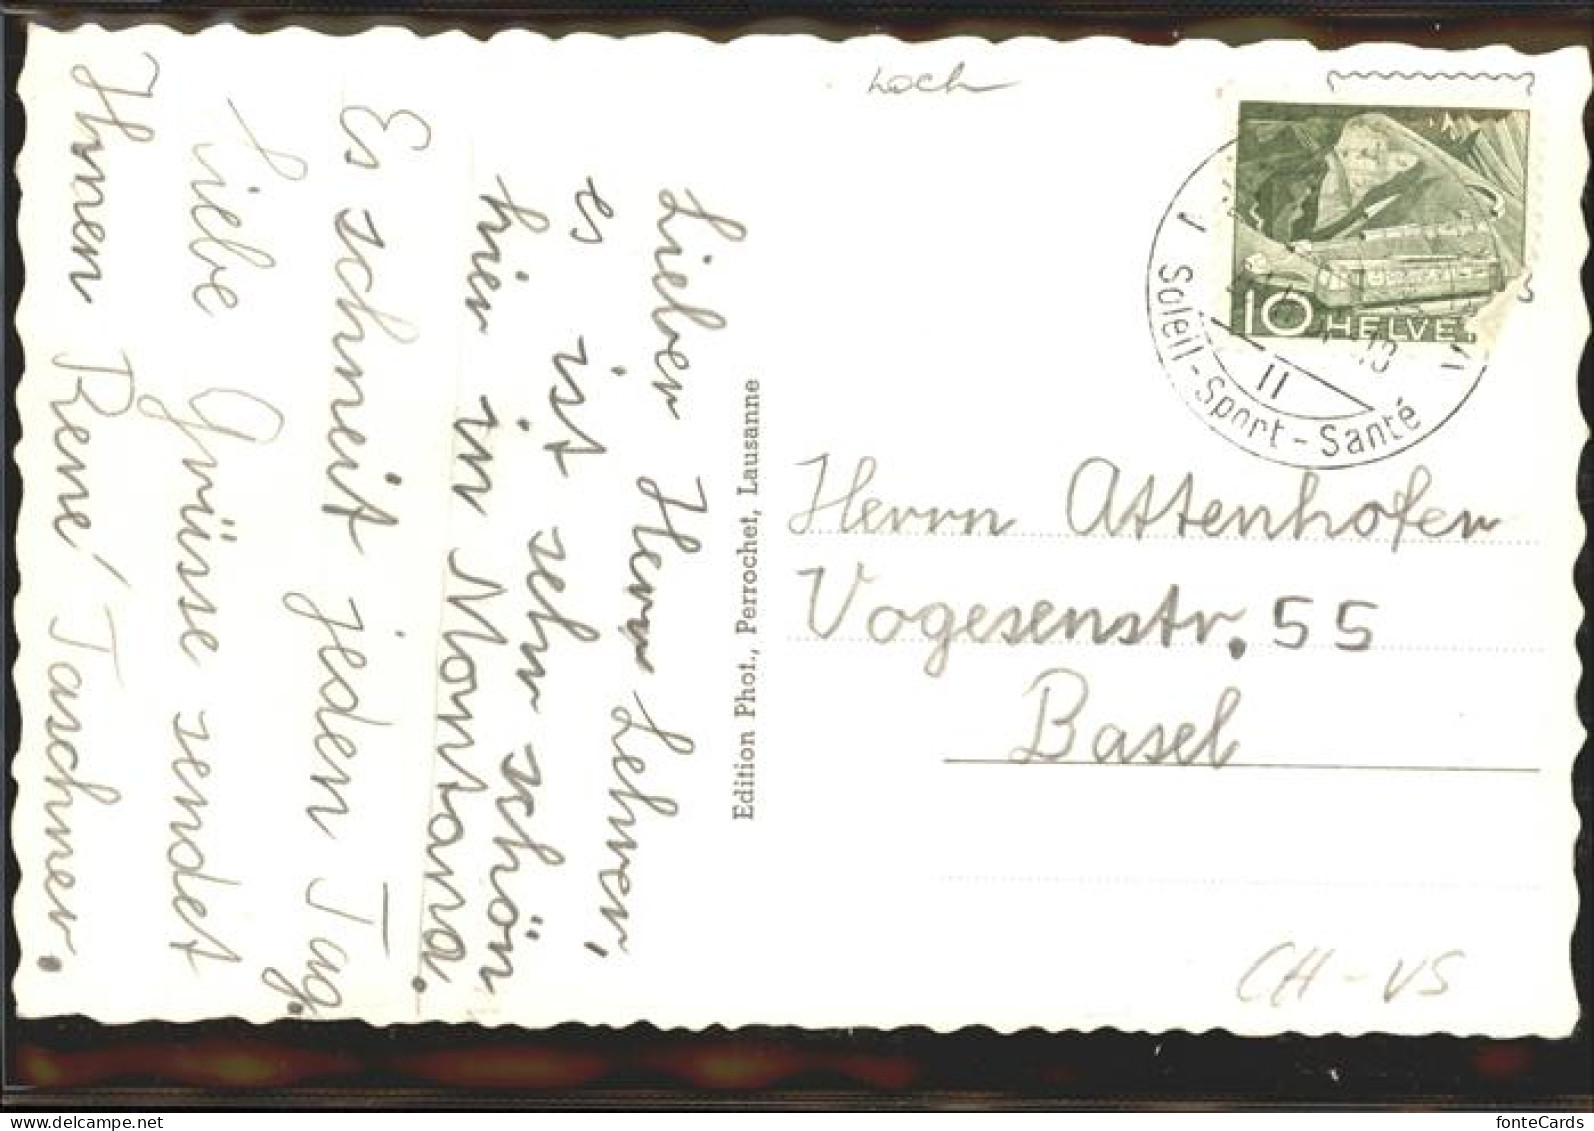 Lieber Herr Lehrer,
es ist sehr schön
hier in Montana.
Es schneit jeden Tag.
Liebe Grüsse sendet
Ihnen René Taschner.
Edition Phot., Perrochet, Lausanne
Loch
10 HELVE
II
Soleil-Sport-Santé
Herrn Attenhofer
Vogesenstr. 55
Basel
CH-VS
fonteCards